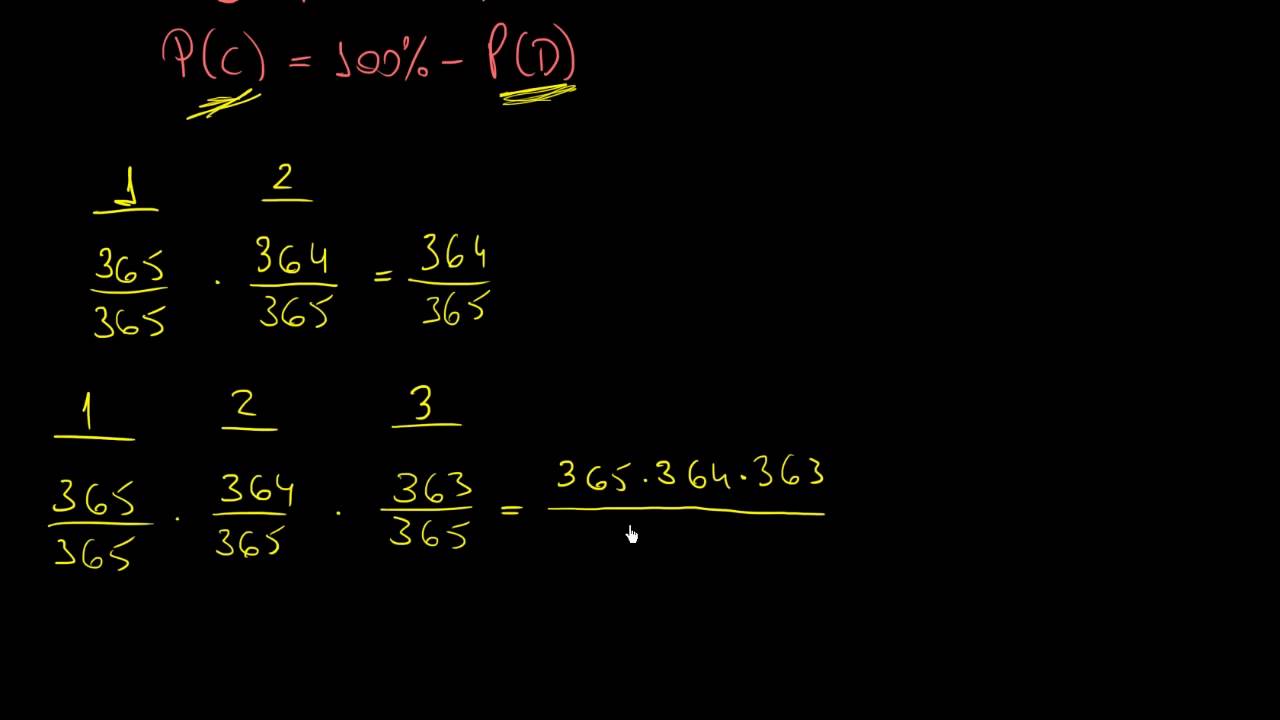 P(C) = 100% - P(D)
1 2
365/365 · 364/365 = 364/365
1 2 3
365/365 · 364/365 · 363/365 = 365·364·363